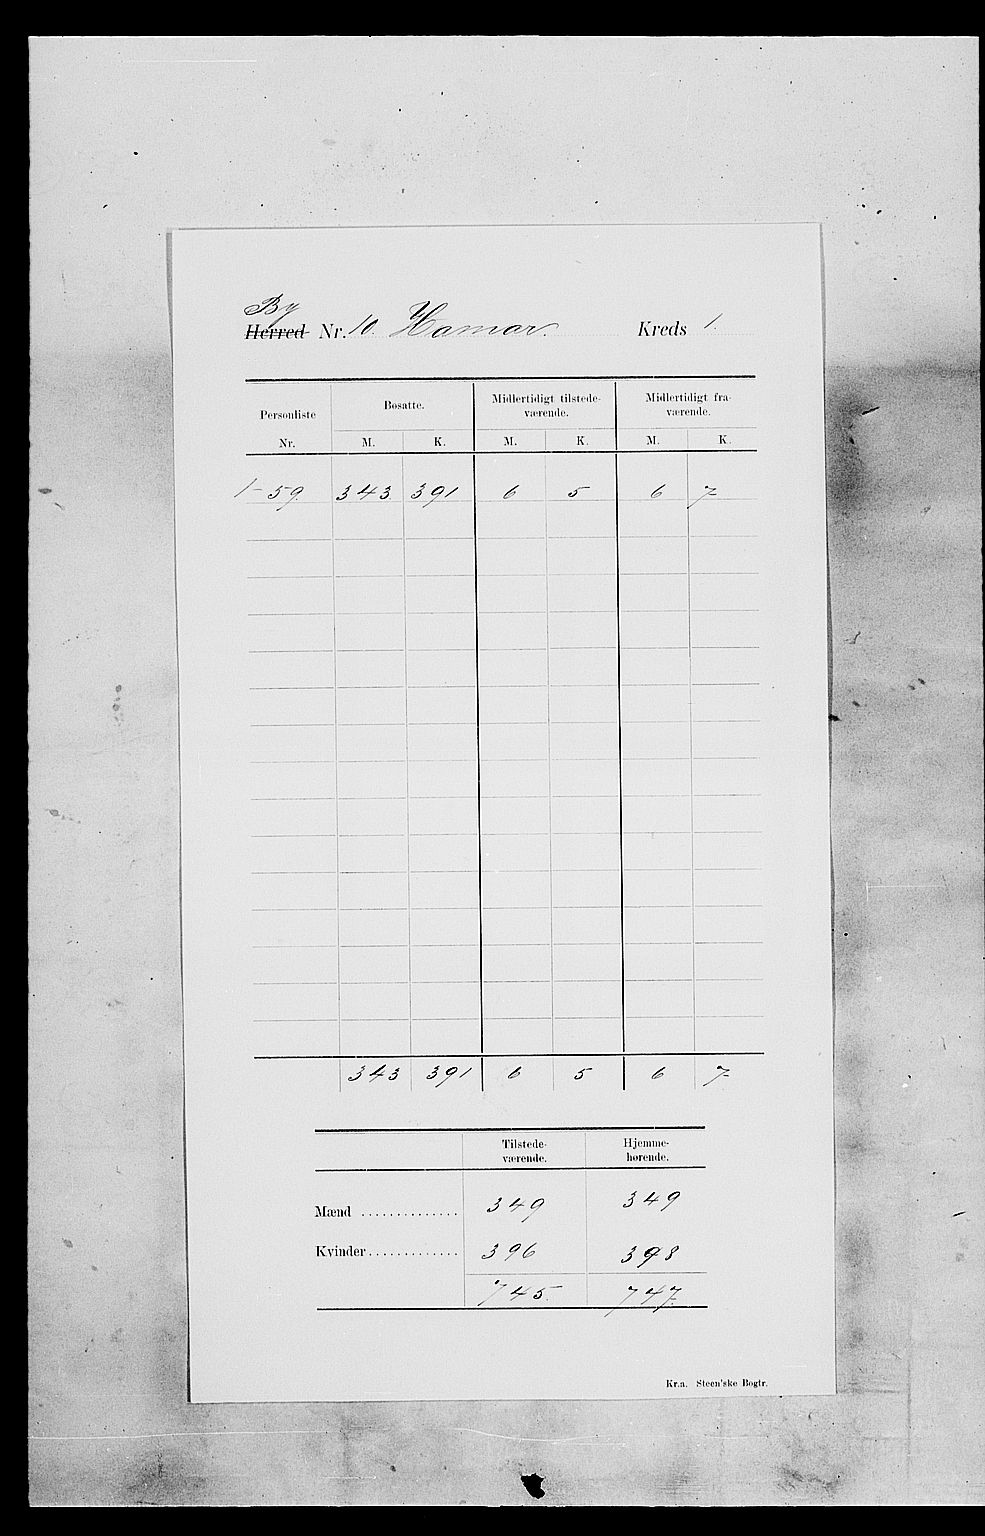 By
Herred Nr. 10. Hamar. Kreds 1.
Personliste Nr. Bosatte. Midlertidigt tilstede-værende. Midlertidigt fra-værende.
M. K. M. K. M. K.
1-59. 343 391 6 5 6 7
343 391 6 5 6 7
Tilstede-værende. Hjemme-hørende.
Mænd .............. 349 349
Kvinder............. 396 398
745. 747.
Kr.a. Steen'ske Bogtr.